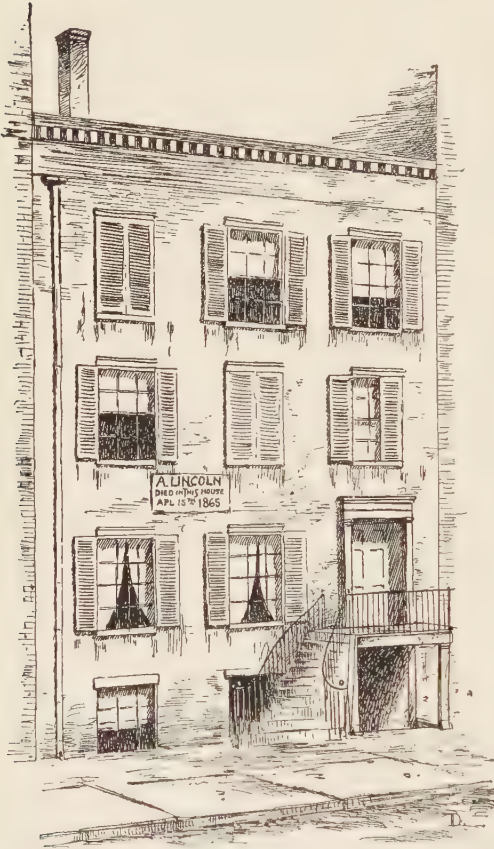 A. LINCOLN
DIED IN THIS HOUSE
APL 15TH 1865
D.